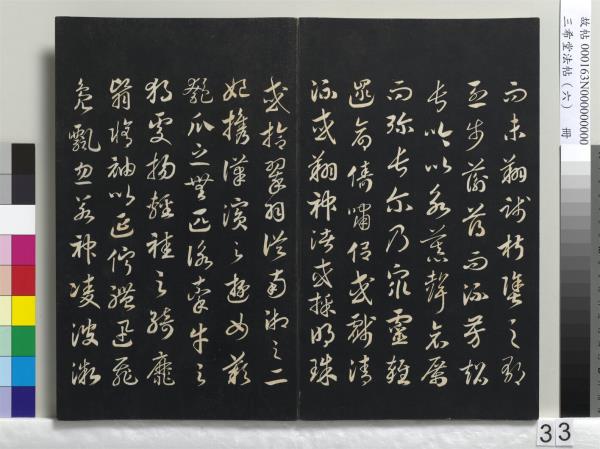 故帖 000163N000000000
三希堂法帖（六） 冊
而未翔踐椒塗之郁
烈步蘅薄而流芳超
長吟以永慕聲哀厲
而彌長尔乃眾靈雜
遝命儔嘯侶或戲清
流或翔神渚或採明珠
或拾翠羽從南湘之二
妃攜漢濱之遊女歎
匏瓜之無匹詠牽牛之
獨處揚輕袿之綺靡
翳脩袖以延佇體迅飛
鳧飄忽若神凌波微
33